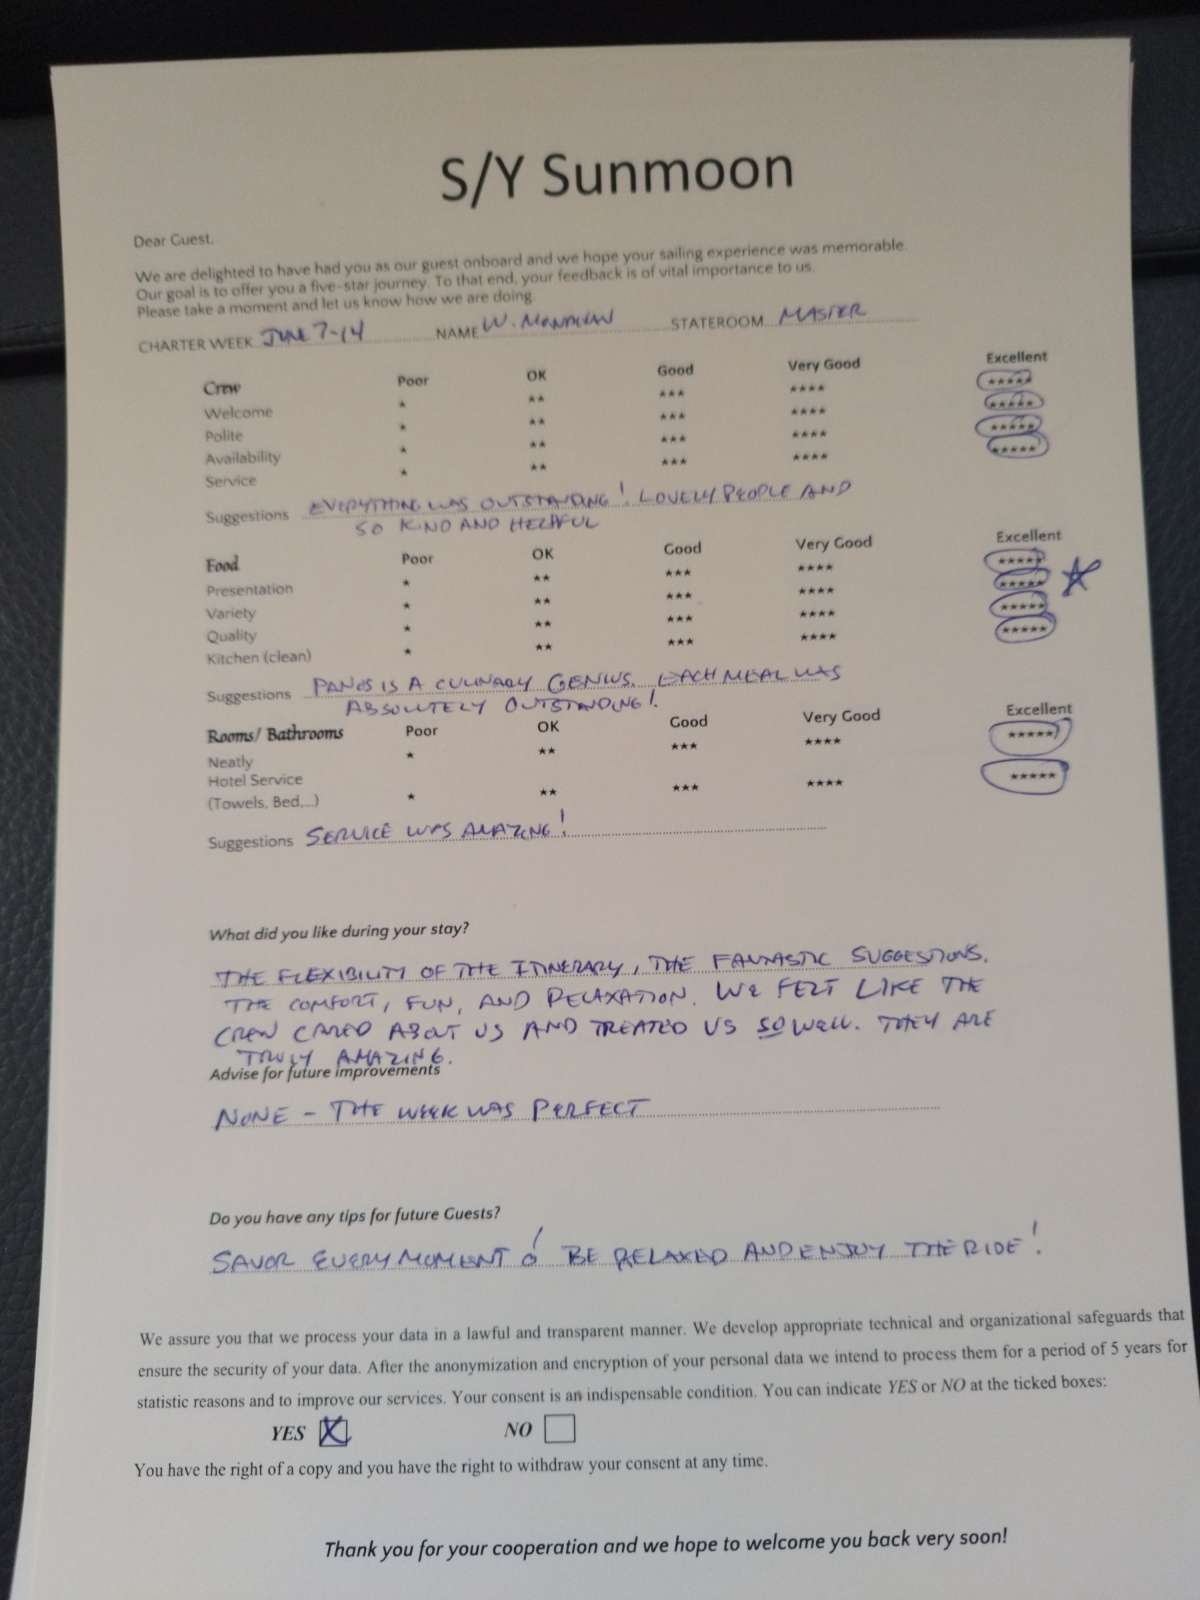 S/Y Sunmoon
Dear Guest,
We are delighted to have had you as our guest onboard and we hope your sailing experience was memorable.
Our goal is to offer you a five-star journey. To that end, your feedback is of vital importance to us.
Please take a moment and let us know how we are doing.
CHARTER WEEK JUNE 7-14 NAME W. MONAHAN STATEROOM MASTER
Crew Poor OK Good Very Good Excellent
Welcome * ** *** **** *****
Polite * ** *** **** *****
Availability * ** *** **** *****
Service * ** *** **** *****
Suggestions EVERYTHING WAS OUTSTANDING! LOVELY PEOPLE AND
SO KIND AND HELPFUL
Food Poor OK Good Very Good Excellent
Presentation * ** *** **** *****
Variety * ** *** **** *****
Quality * ** *** **** *****
Kitchen (clean) * ** *** **** *****
Suggestions PANOS IS A CULINARY GENIUS. EACH MEAL WAS
ABSOLUTELY OUTSTANDING!
Rooms/ Bathrooms Poor OK Good Very Good Excellent
Neatly * ** *** **** *****
Hotel Service
(Towels, Bed,...) * ** *** **** *****
Suggestions SERVICE WAS AMAZING!
What did you like during your stay?
THE FLEXIBILITY OF THE ITINERARY, THE FANTASTIC SUGGESTIONS,
THE COMFORT, FUN, AND RELAXATION. WE FELT LIKE THE
CREW CARED ABOUT US AND TREATED US SO WELL. THEY ARE
TRULY AMAZING.
Advise for future improvements
NONE - THE WEEK WAS PERFECT
Do you have any tips for future Guests?
SAVOR EVERY MOMENT! BE RELAXED AND ENJOY THE RIDE!
We assure you that we process your data in a lawful and transparent manner. We develop appropriate technical and organizational safeguards that
ensure the security of your data. After the anonymization and encryption of your personal data we intend to process them for a period of 5 years for
statistic reasons and to improve our services. Your consent is an indispensable condition. You can indicate YES or NO at the ticked boxes:
YES X NO
You have the right of a copy and you have the right to withdraw your consent at any time.
Thank you for your cooperation and we hope to welcome you back very soon!